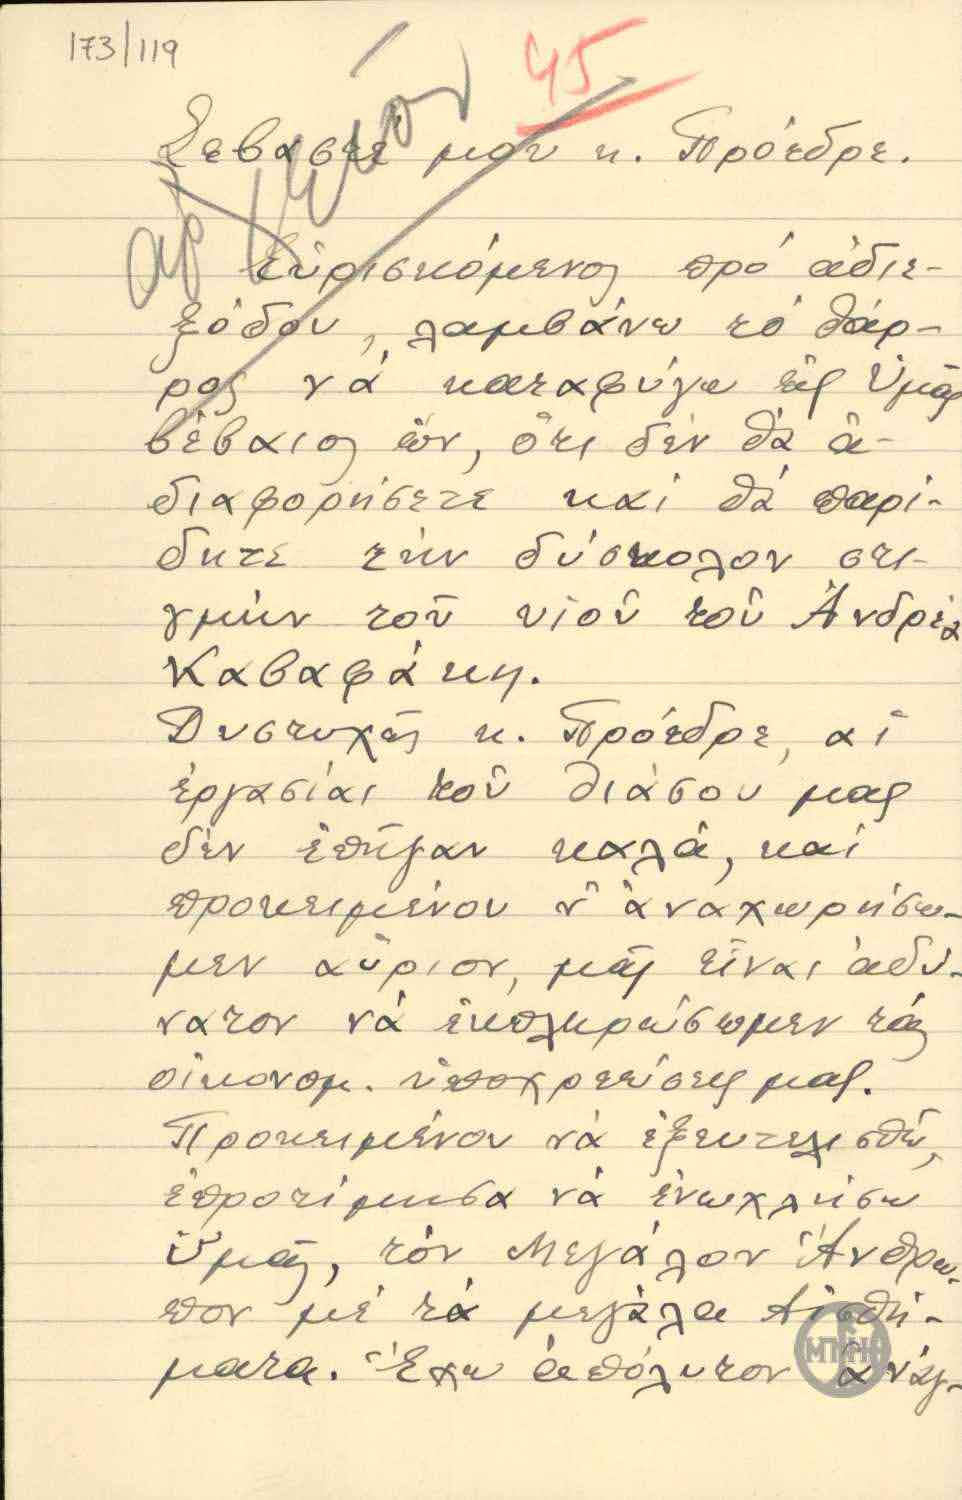 173/119
45
ἀρχεῖον
Σεβαστέ μου κ. Πρόεδρε.
Εὑρισκόμενος πρό ἀδιε-
ξόδου, λαμβάνω τό θάρ-
ρος νά καταφύγω εἰς Ὑμᾶς
βέβαιος ὤν, ὅτι δέν θά ἀ-
διαφορήσετε καί θά παρί-
δητε τήν δύσκολον στι-
γμήν τοῦ υἱοῦ τοῦ Ἀνδρέα
Καβαφάκη.
Δυστυχῶς κ. Πρόεδρε, αἱ
ἐργασίαι τοῦ θιάσου μας
δέν ἐπῆγαν καλά, καί
προκειμένου ν' ἀναχωρήσω-
μεν αὔριον, μᾶς εἶναι ἀδύ-
νατον νά ἐκπληρώσωμεν τάς
οἰκονομ. ὑποχρεώσεις μας.
Προκειμένου νά ἐξευτελισθῶ,
ἐπροτίμησα νά ἐνωχλήσω
Ὑμᾶς, τόν Μεγάλον Ἄνθρω-
πον μέ τά μεγάλα Αἰσθή-
ματα. Ἔχω ἀπόλυτον ἀνάγ-